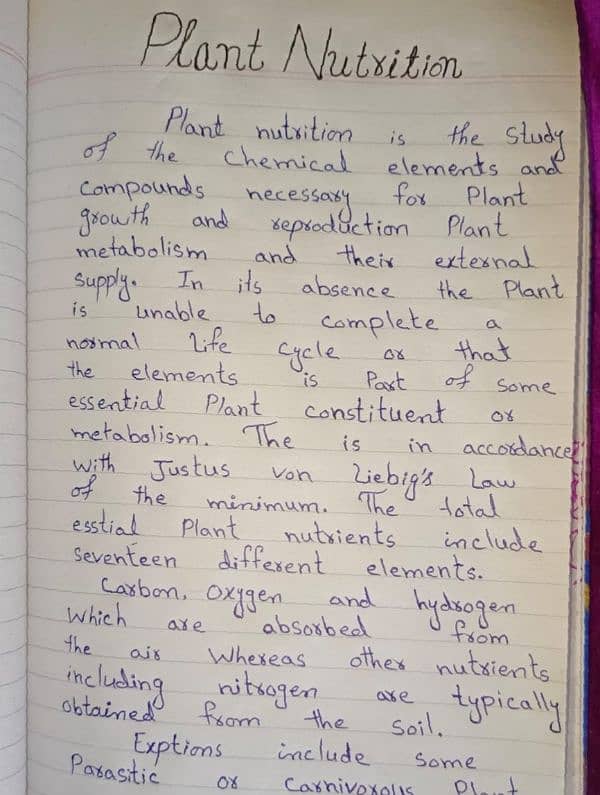 Plant Nutrition
Plant nutrition is the study
of the chemical elements and
compounds necessary for Plant
growth and reproduction Plant
metabolism and their external
supply. In its absence the Plant
is unable to complete a
normal life cycle or that
the elements is Part of some
essential Plant constituent or
metabolism. The is in accordance
with Justus von Liebig's Law
of the minimum. The total
esstial Plant nutrients include
seventeen different elements.
Carbon, oxygen and hydrogen
which are absorbed from
the air Whereas other nutrients
including nitrogen are typically
obtained from the soil.
Exptions include some
Parasitic or Carnivorous Plant